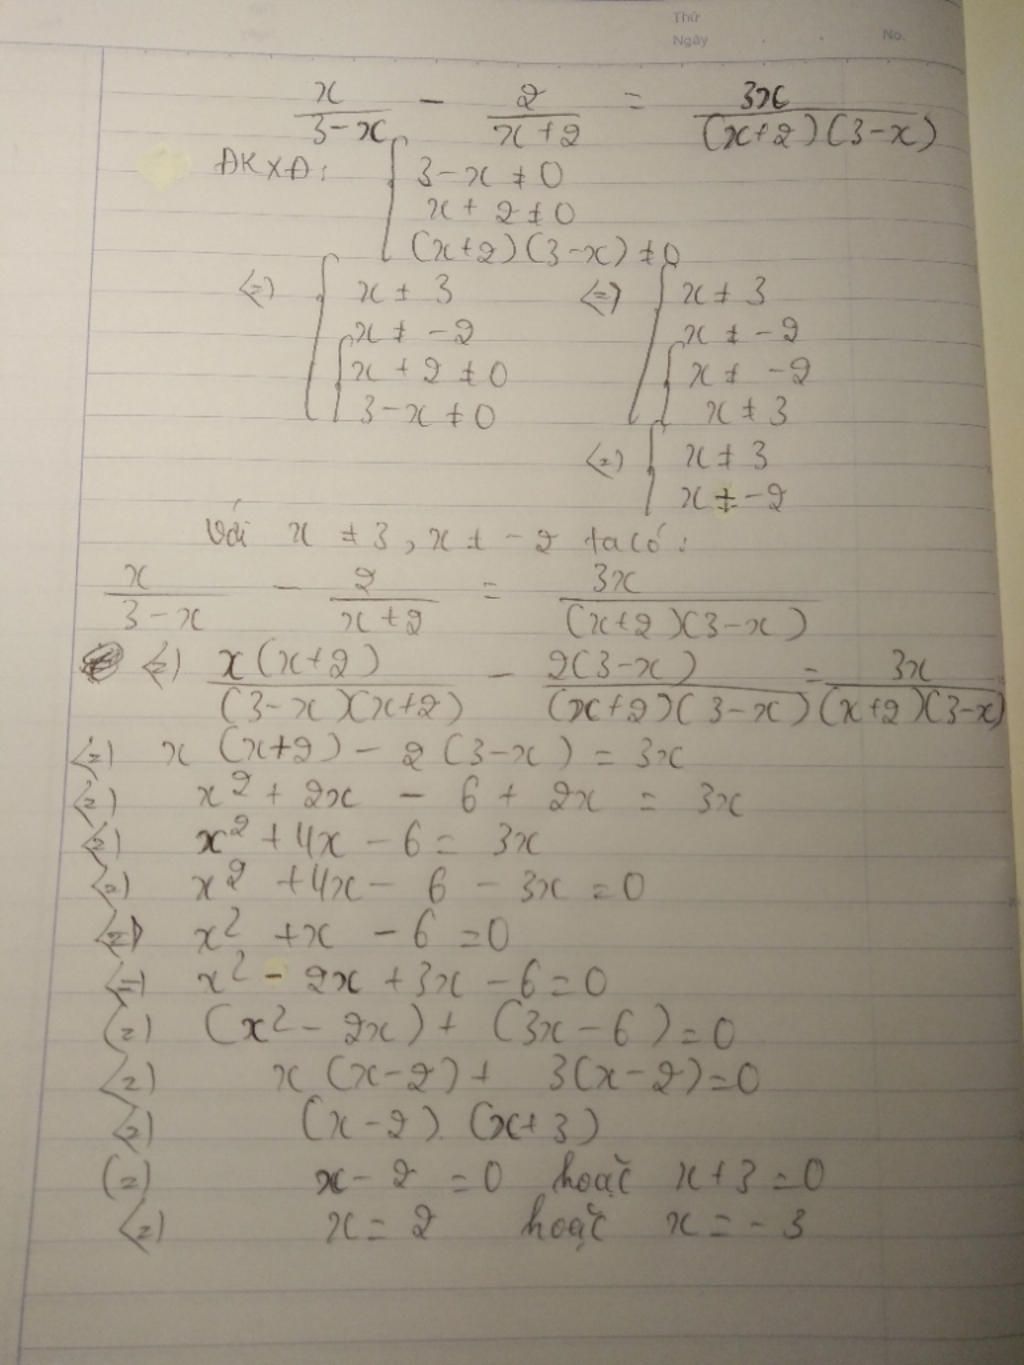 Thứ
Ngày No.
x/(3-x) - 2/(x+2) = 3x/((x+2)(3-x))
ĐKXĐ: { 3-x ≠ 0
x+2 ≠ 0
(x+2)(3-x) ≠ 0
<=> { x ≠ 3 <=> { x ≠ 3
x ≠ -2 x ≠ -2
{ x+2 ≠ 0 { x ≠ -2
3-x ≠ 0 x ≠ 3
<=> { x ≠ 3
x ≠ -2
Với x ≠ 3, x ≠ -2 ta có:
x/(3-x) - 2/(x+2) = 3x/((x+2)(3-x))
<=> x(x+2)/((3-x)(x+2)) - 2(3-x)/((x+2)(3-x)) = 3x/((x+2)(3-x))
<=> x(x+2) - 2(3-x) = 3x
<=> x² + 2x - 6 + 2x = 3x
<=> x² + 4x - 6 = 3x
<=> x² + 4x - 6 - 3x = 0
<=> x² + x - 6 = 0
<=> x² - 2x + 3x - 6 = 0
<=> (x² - 2x) + (3x - 6) = 0
<=> x(x-2) + 3(x-2) = 0
<=> (x-2).(x+3)
<=> x - 2 = 0 hoặc x + 3 = 0
<=> x = 2 hoặc x = -3